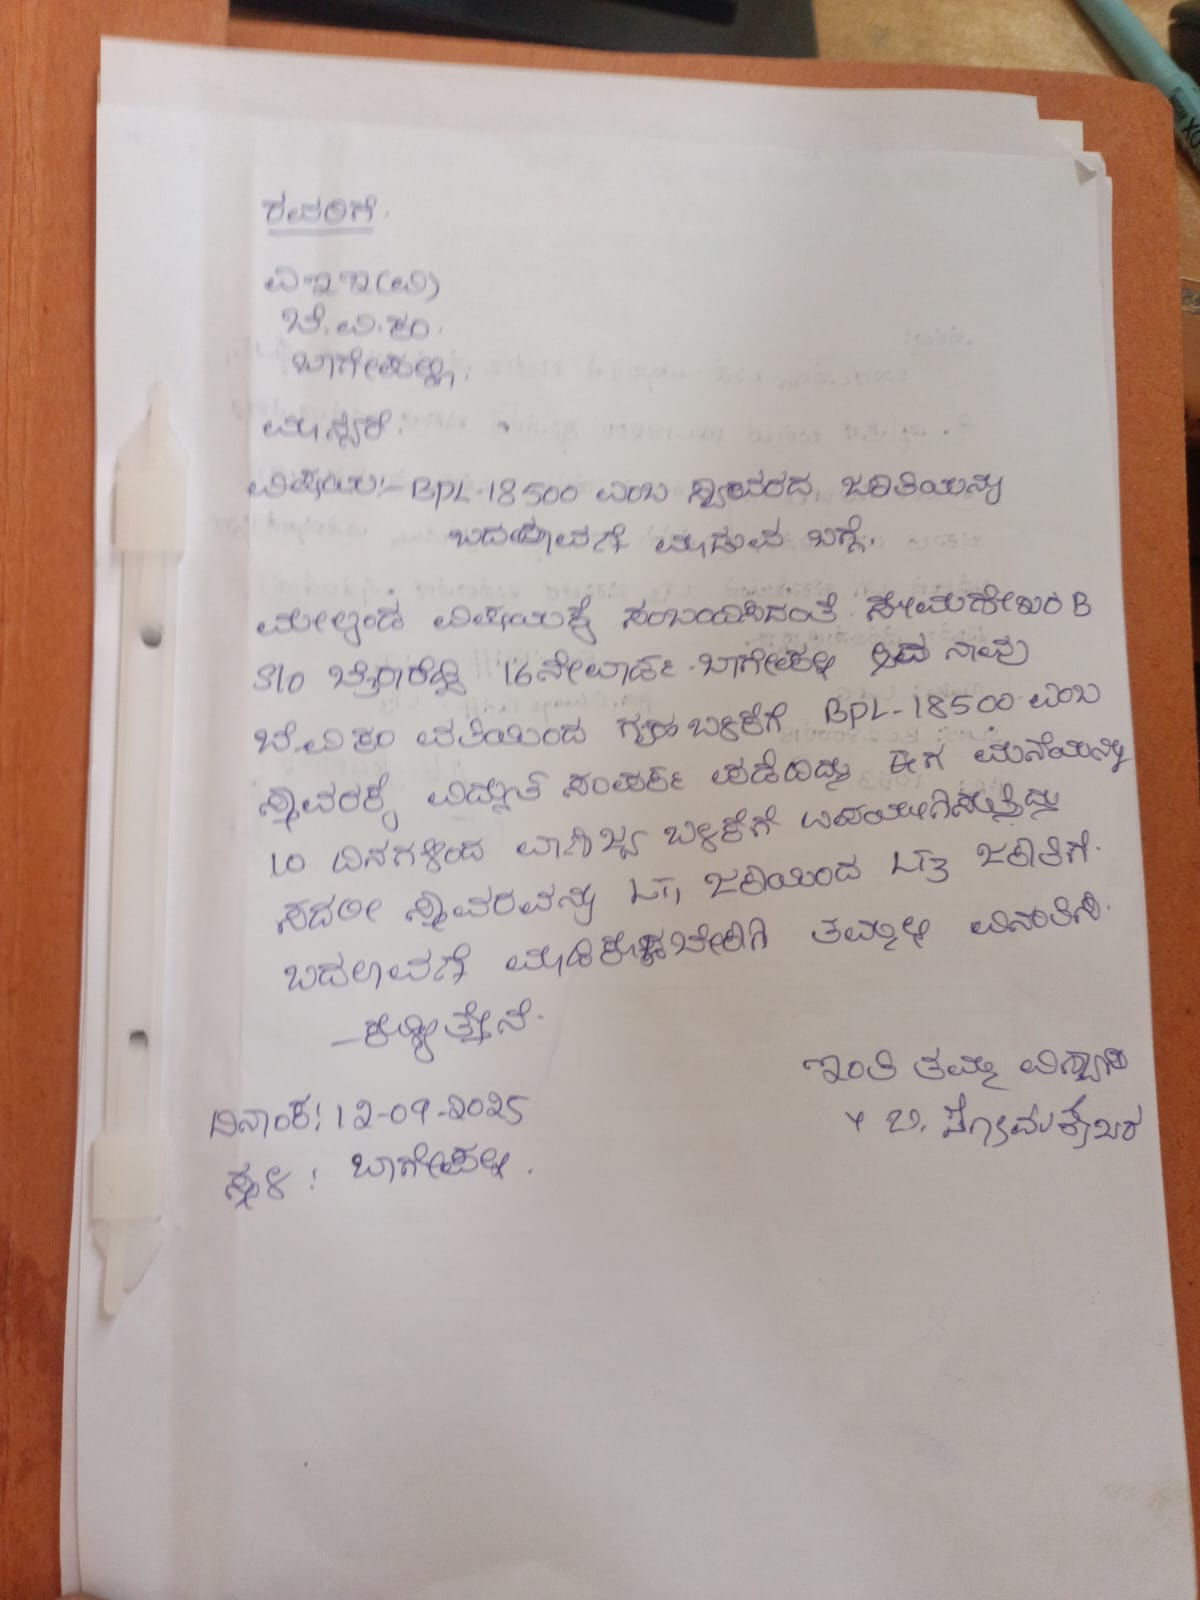 ರವರಿಗೆ.
ಎಇಇ(ವಿ)
ಬೆ.ವಿ.ಕಂ.
ಬಾಗೇಪಲ್ಲಿ.
ಮಾನ್ಯರೆ.
ವಿಷಯ:- BPL-18500 ಎಂಬ ಸ್ಥಾವರದ ಜಕಾತಿಯನ್ನು
ಬದಲಾವಣೆ ಮಾಡುವ ಬಗ್ಗೆ.
ಮೇಲ್ಕಂಡ ವಿಷಯಕ್ಕೆ ಸಂಬಂದಿಸಿದಂತೆ ಸೋಮಶೇಖರ B
S/o 16ನೇವಾರ್ಡ್ ಬಾಗೇಪಲ್ಲಿ ಆದ ನಾವು
ಬೆ.ವಿ.ಕಂ ವತಿಯಿಂದ ಗೃಹ ಬಳಕೆಗೆ BPL-18500 ಎಂಬ
ಸ್ಥಾವರಕ್ಕೆ ವಿದ್ಯುತ್ ಸಂಪರ್ಕ ಪಡೆದಿದ್ದು ಈಗ ಮನೆಯನ್ನು
10 ದಿನಗಳಿಂದ ವಾಣಿಜ್ಯ ಬಳಕೆಗೆ ಉಪಯೋಗಿಸುತ್ತಿದ್ದು
ಸದರೀ ಸ್ಥಾವರವನ್ನು LT1 ಜಕಾತಿಯಿಂದ LT3 ಜಕಾತಿಗೆ.
ಬದಲಾವಣೆ ಮಾಡಿಕೊಡಬೇಕಾಗಿ ತಮ್ಮಲ್ಲಿ ವಿನಂತಿಸಿ.
-ಕೊಳ್ಳುತ್ತೇನೆ.
ಇಂತಿ ತಮ್ಮ ವಿಶ್ವಾಸಿ
ಬಿ. ಸೋಮಶೇಖರ
ದಿನಾಂಕ: 12-09-2025
ಸ್ಥಳ : ಬಾಗೇಪಲ್ಲಿ.